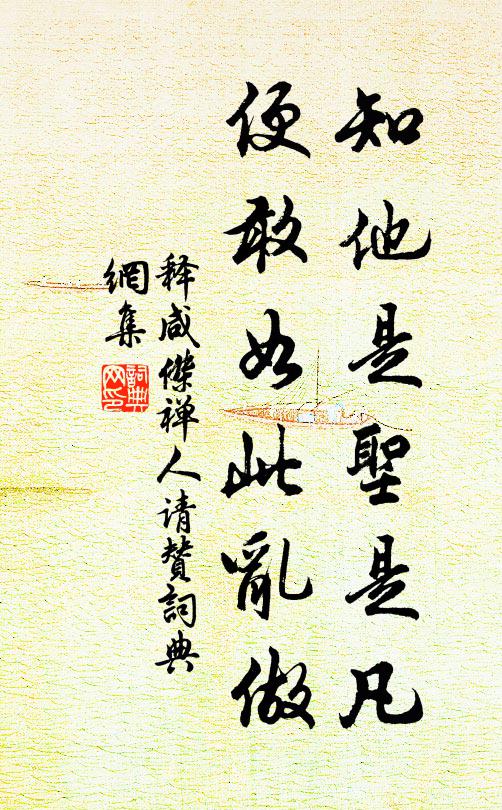 知他是聖是凡
便敢如此亂做
释咸傑禅人请賛詞典
網集
詞典
网印